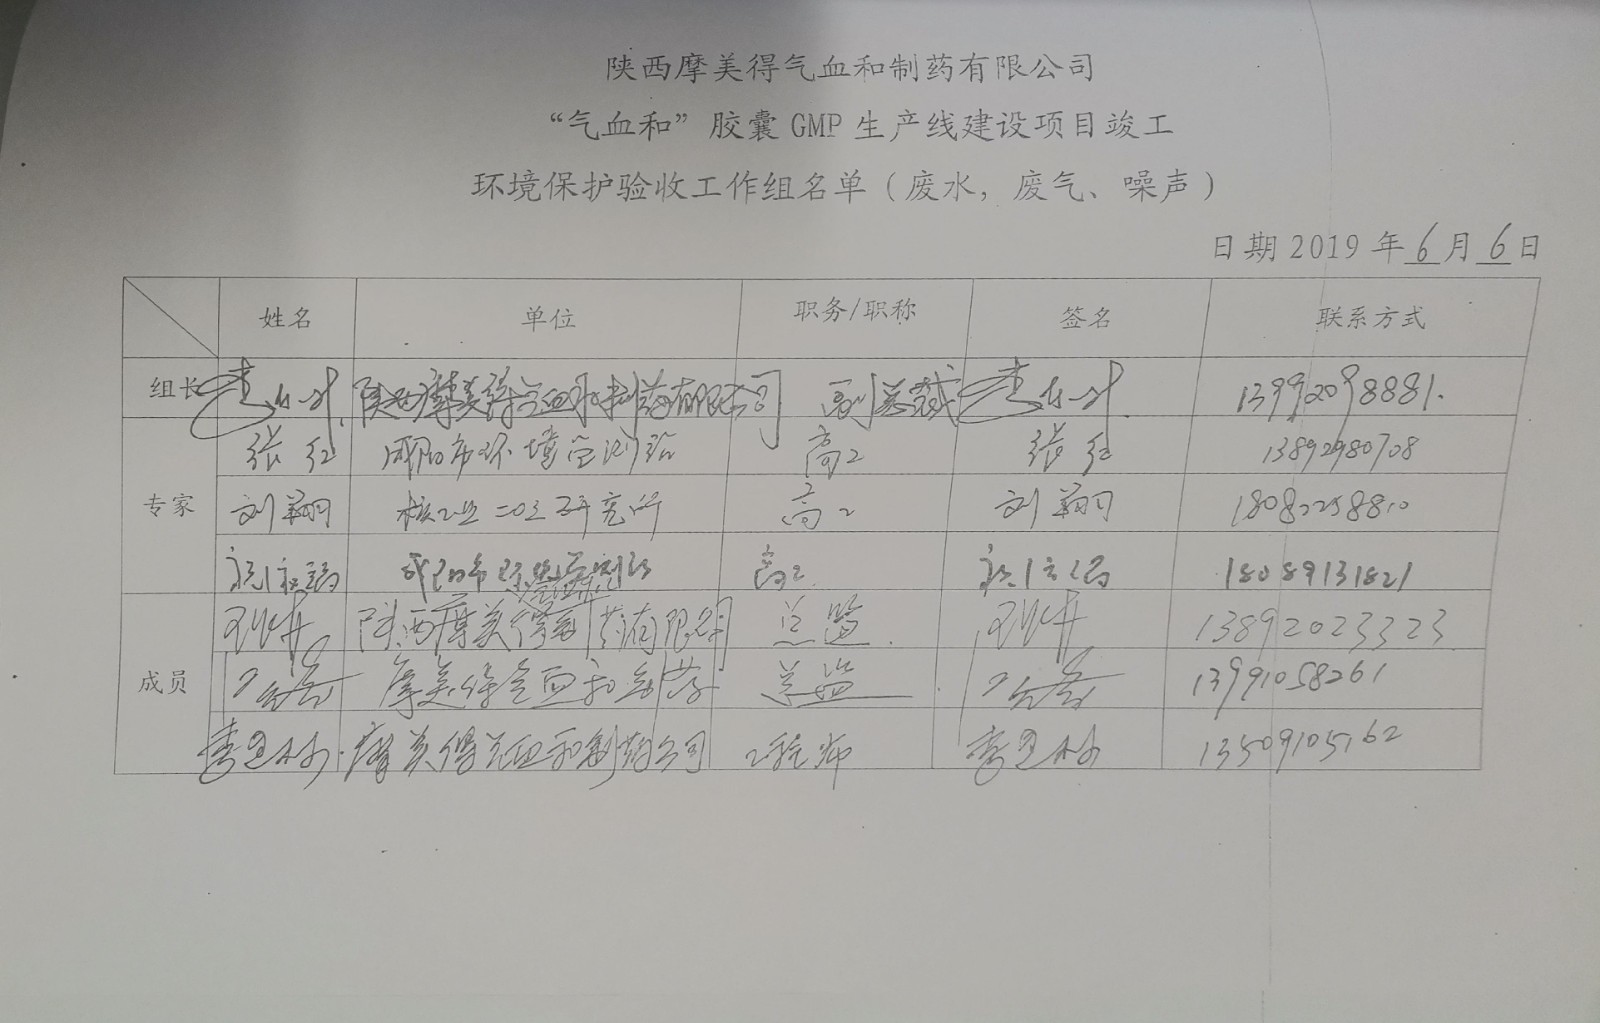 陕西摩美得气血和制药有限公司
“气血和”胶囊 GMP 生产线建设项目竣工
环境保护验收工作组名单（废水，废气、噪声）
日期 2019 年 6 月 6 日
姓名 单位 职务/职称 签名 联系方式
组长 陕西摩美得气血和制药有限公司 副总裁 13992098881.
专家 张红 咸阳市环境监测站 高工 张红 13892980708
刘翔 核工业二〇三研究所 高工 刘翔
咸阳市环境监测站 高工 18089131821
成员 陕西摩美得制药有限公司 总监 13892023323
摩美得气血和制药 总监 13991058261
李卫林 摩美得气血和制药公司 工程师 李卫林 13509105162